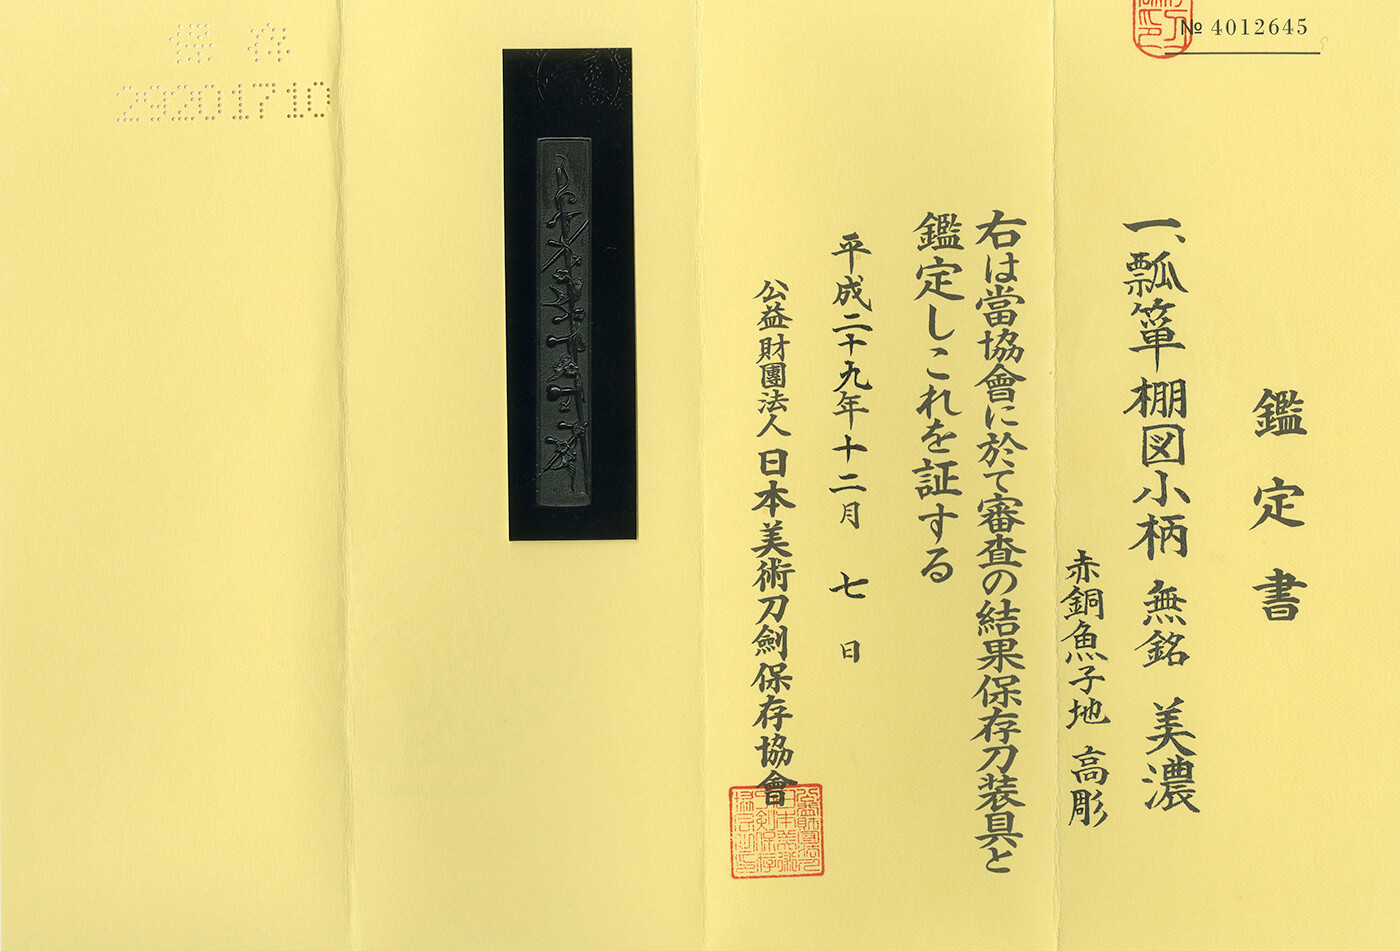 № 4012645
鑑定書
一、瓢箪棚図小柄 無銘 美濃
赤銅魚子地 高彫
右は當協會に於て審査の結果保存刀装具と
鑑定しこれを証する
平成二十九年十二月 七 日
公益財團法人日本美術刀劍保存協會
保存
29201710